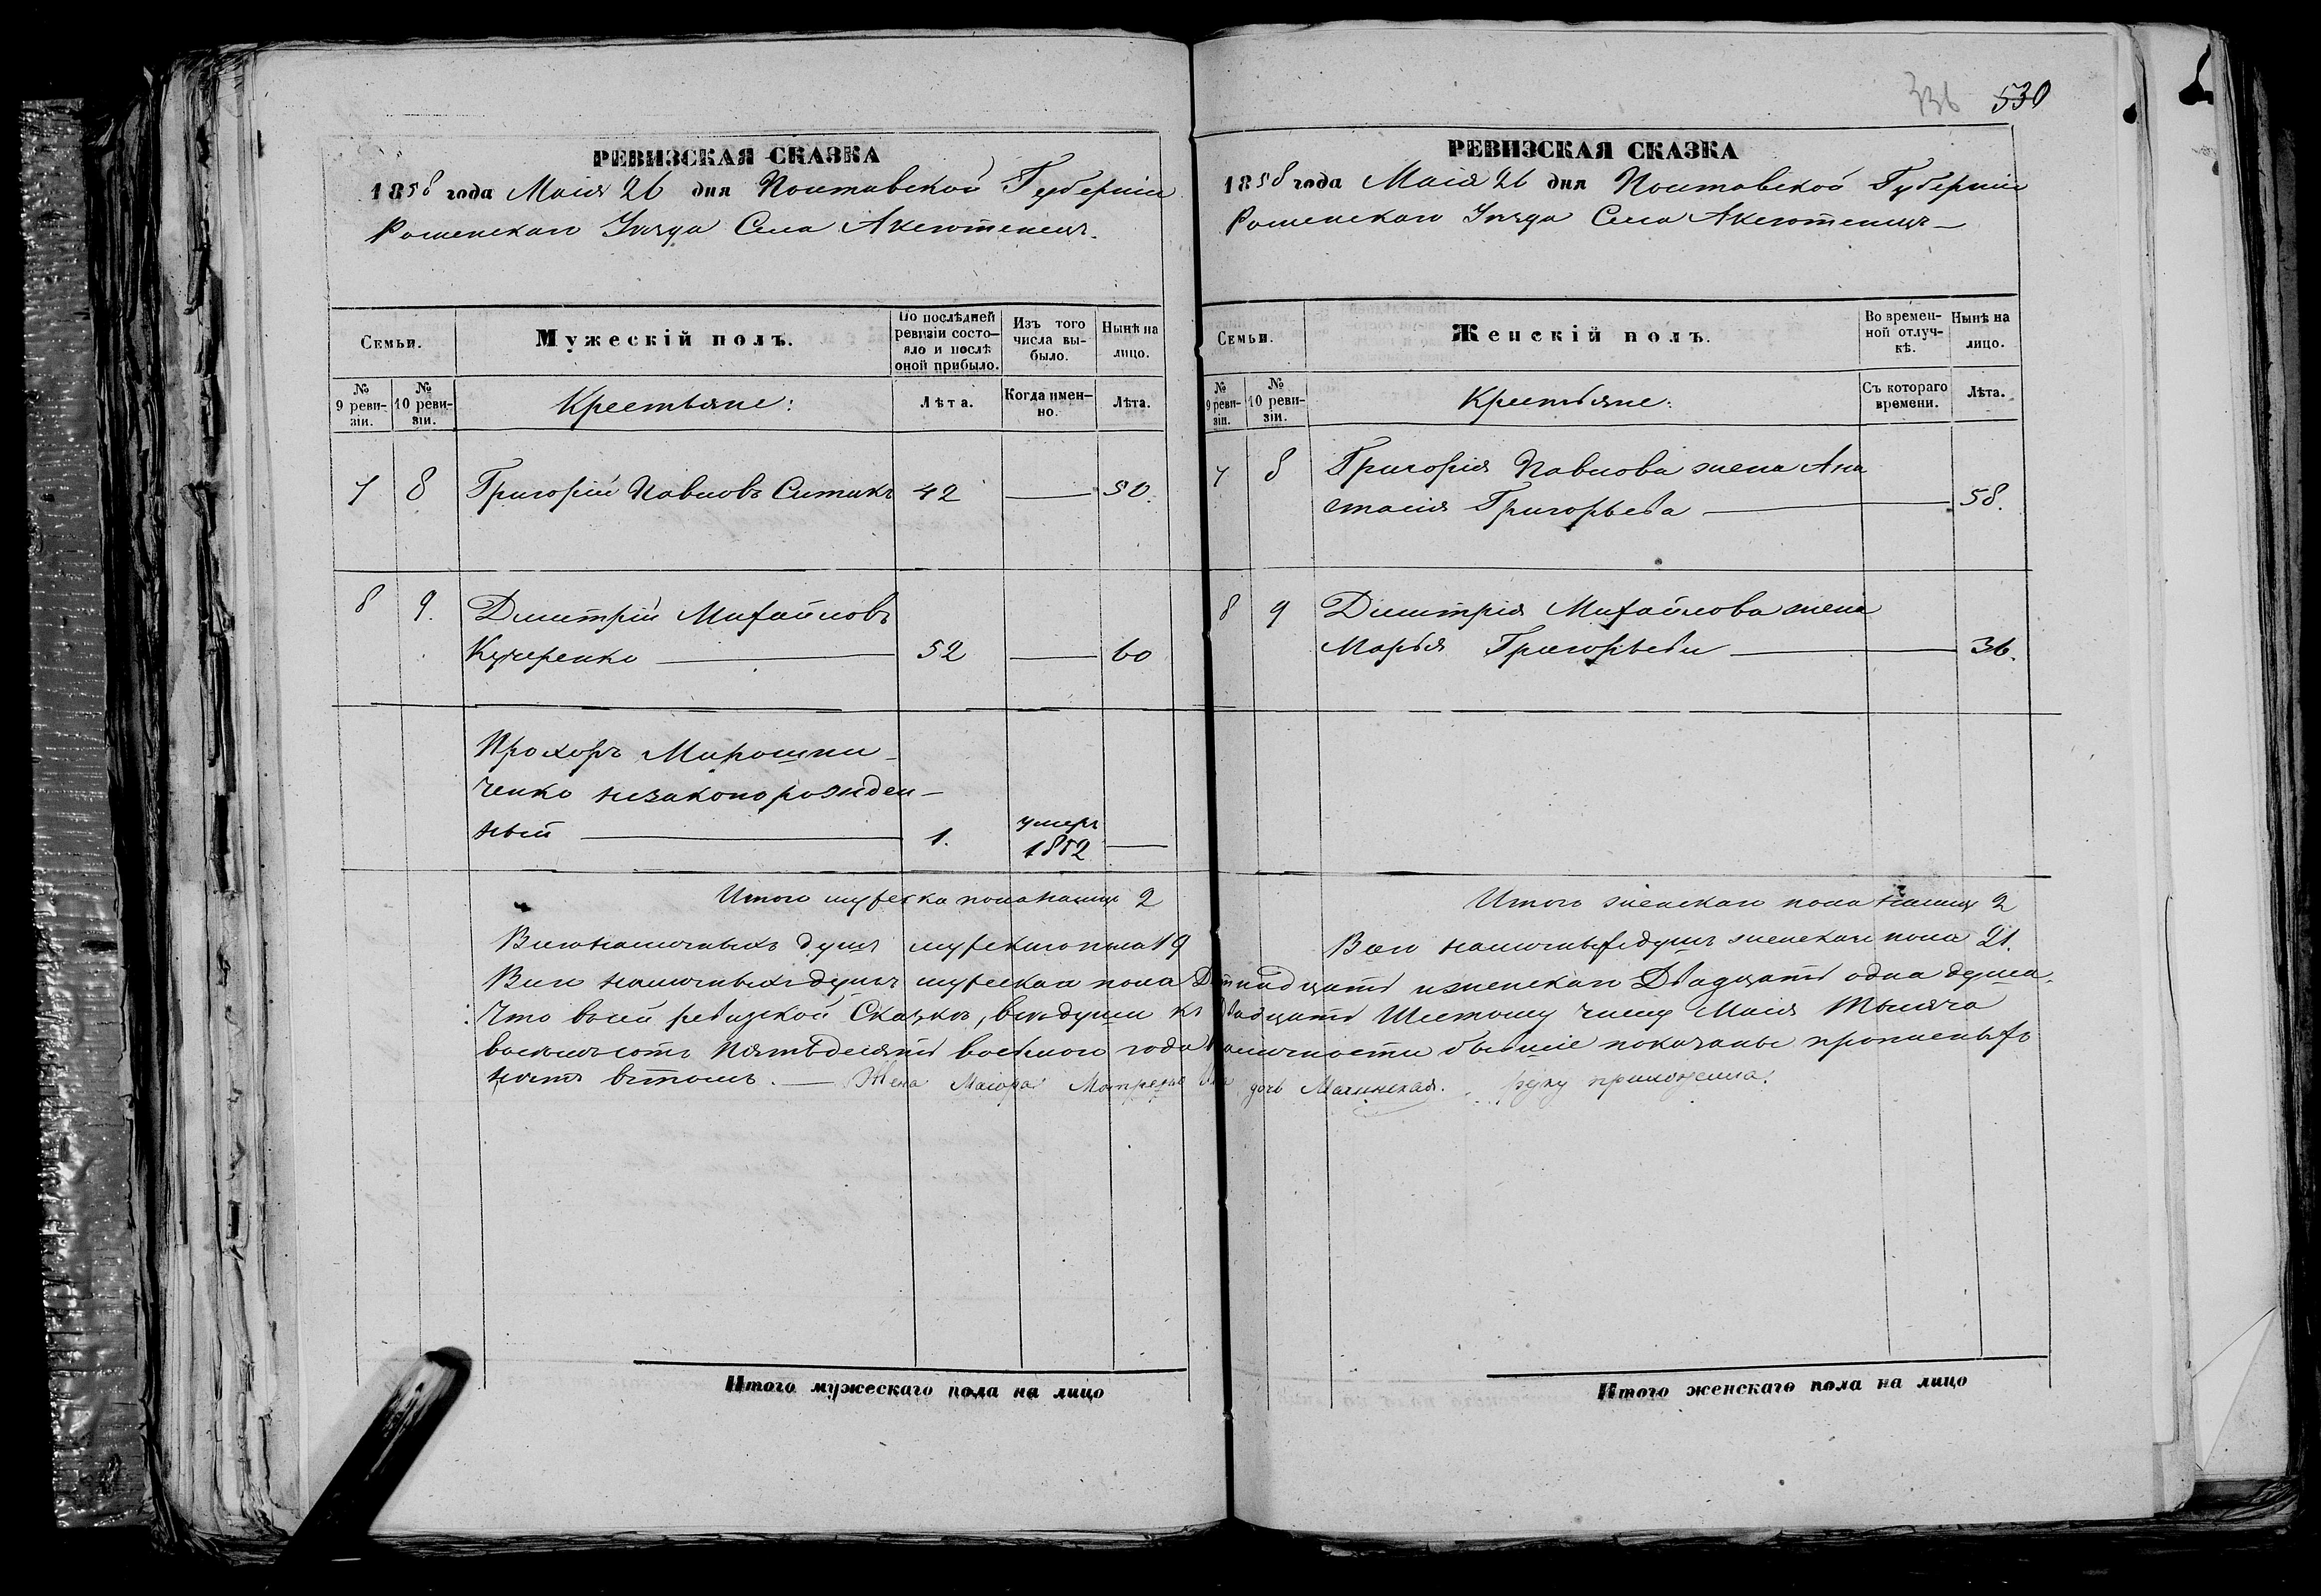 336 530
РЕВИЗСКАЯ СКАЗКА
1858 года Маія 26 дня Полтавской Губерніи
Роменскаго Уѣзда Села Аксютенецъ
Семьи.
Мужескій полъ.
По послѣдней ревизіи состояло и послѣ оной прибыло.
Изъ того числа выбыло.
Нынѣ на лицо.
№ 9 ревизіи.
№ 10 ревизіи.
Крестьяне:
Лѣта.
Когда именно.
Лѣта.
7 8 Григорій Павловъ Ситикъ 42 — 50.
8 9. Дмитрій Михайловъ
Кучеренко — 52 — 60
Прохоръ Мирошни-
ченко незаконорожден-
ный — 1. умеръ 1852 —
Итого мужеска пола налицо 2
Всего наличныхъ душъ мужескаго пола 19
РЕВИЗСКАЯ СКАЗКА
1858 года Маія 26 дня Полтавской Губерніи
Роменскаго Уѣзда Села Аксютенецъ
Семьи.
Женскій полъ.
Во временной отлучкѣ.
Нынѣ на лицо.
№ 9 ревизіи.
№ 10 ревизіи.
Крестьяне:
Съ котораго времени.
Лѣта.
7 8 Григорія Павлова жена Ана
стасія Григорьева — 58.
8 9 Дмитрія Михайлова жена
Марья Григорьева — 36.
Итого женскаго пола налицо 2
Всего наличныхъ душъ женскаго пола 21.
Всего наличныхъ душъ мужескаго пола Девятнадцать и женскаго Двадцать одна душа.
Что въ сей ревизской Сказкѣ, всѣ души къ двадцать Шестому числу Маія Тысяча
восемьсотъ Пятьдесятъ восьмого года наличности бывшіе показаны пропсеныхъ
нѣтъ въ томъ. — Жена Маіора Матрена дочь Малинская. руку приложила.
Итого мужескаго пола на лицо
Итого женскаго пола на лицо